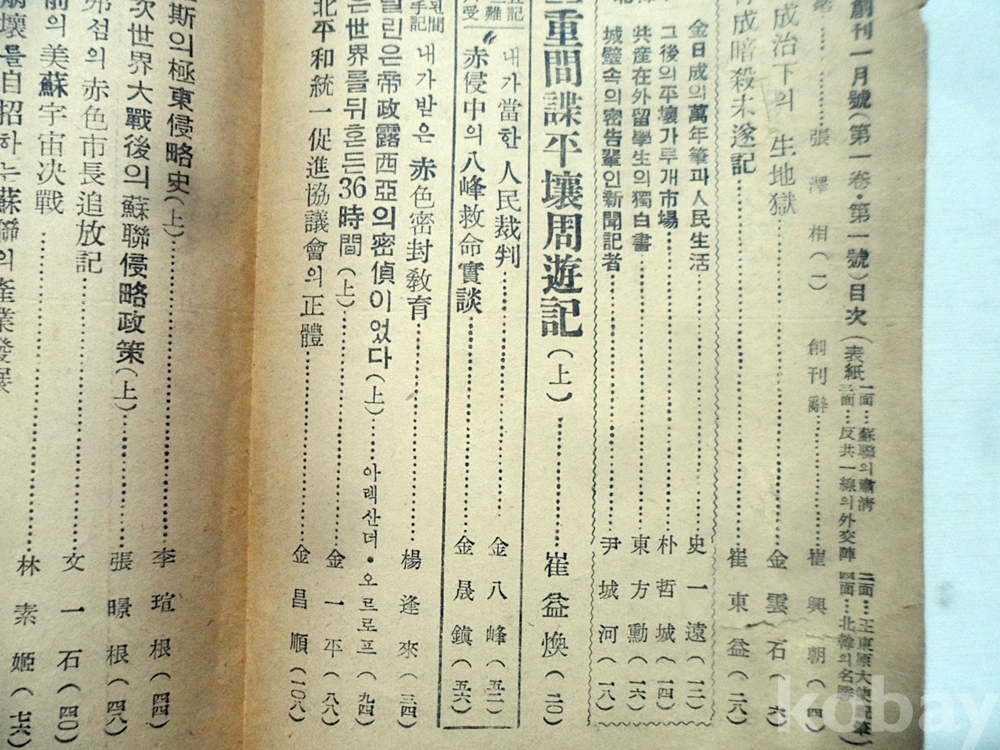 創刊一月號(第一卷・第一號)目次 (表紙 一面…蘇聯의 肅清 二面…王東原大使記筆
三面…反共一線의 外交陣 四面…北韓의 名
張澤相(一) 創刊辭 崔興朝(四)
成治下의 生地獄 金雲石(六)
成暗殺未遂記 崔東益(二八)
金日成의 萬年筆과 人民生活 史一遠(一二)
그後의 平壤가루개市場 朴哲城(一四)
共産在外留學生의 獨白書 東方勳(一六)
城壁속의 密告輩인 新聞記者 尹城河(一八)
重間諜平壤周遊記(上) 崔益煥(二〇)
내가 當한 人民裁判 金八峰(五二)
赤侵中의 八峰救命實談 金晟鎭(五六)
手記 내가받은 赤色密封敎育 楊逢來(三四)
린은 帝政露西亞의 密偵이었다(上) 아레산더・오르로프(九四)
는 世界를 뒤흔든 36時間(上) 金一平(八八)
北平和統一促進協議會의 正體 金昌順(一〇八)
斯의 極東侵略史(上) 李瑄根(四四)
次世界大戰後의 蘇聯侵略政策(上) 張暻根(四八)
섬의 赤色市長追放記 文一石(四〇)
前의 美蘇宇宙決戰 林素姬(七六)
崩壞를 自招하는 蘇聯의 産業發展
kobay